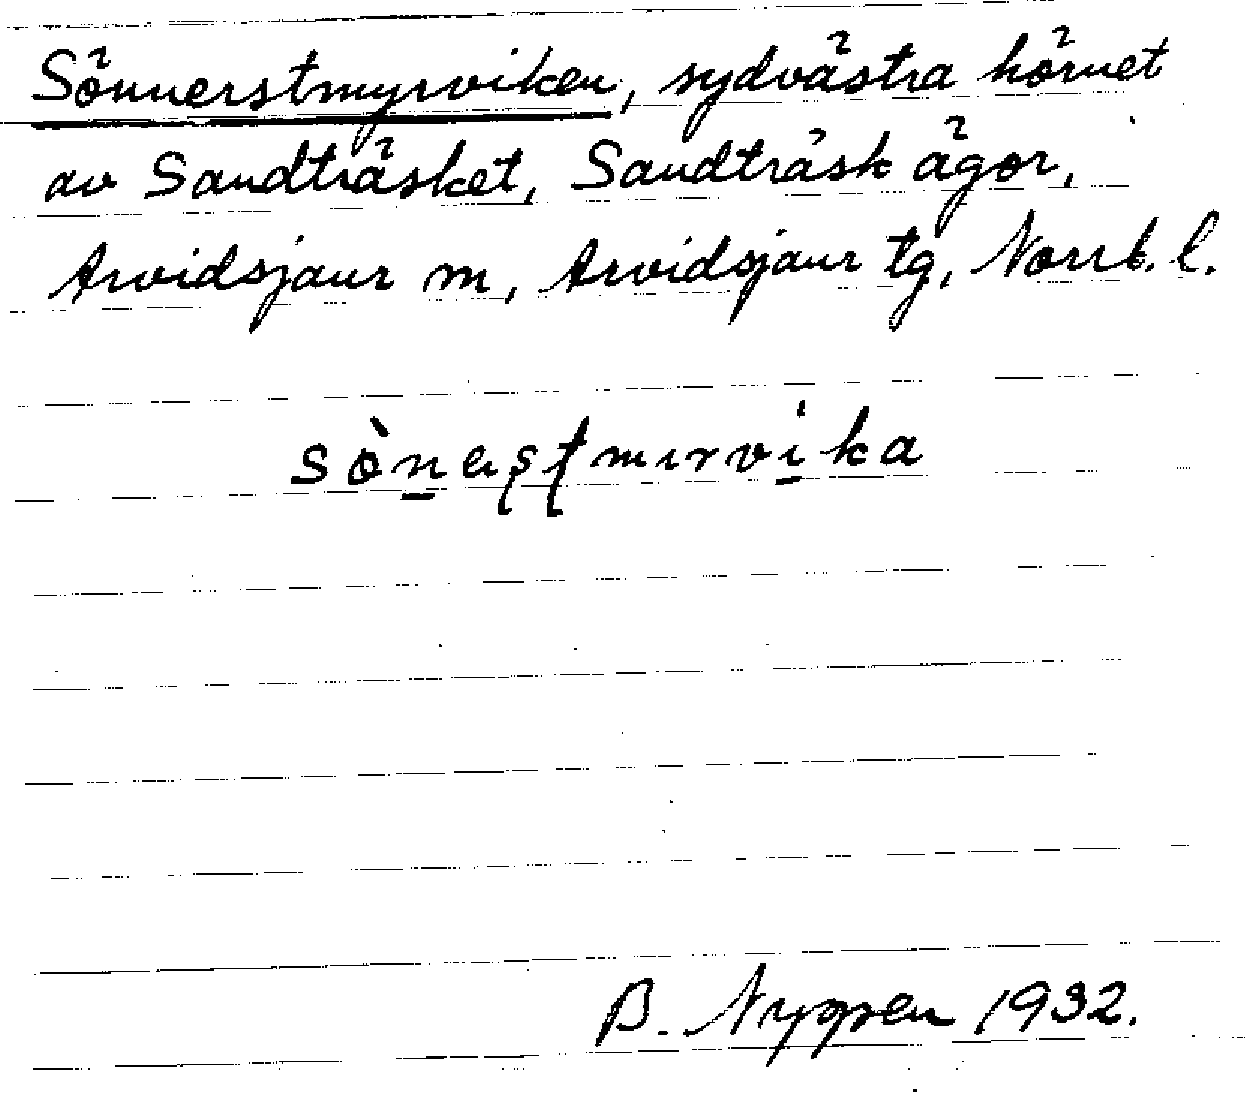 Sönnerstmyrviken, sydvästra hörnet
av Sandträsket, Sandträsk ägor,
Arvidsjaur m, Arvidsjaur tg, Norrb. l.
B. Nyppen 1932.